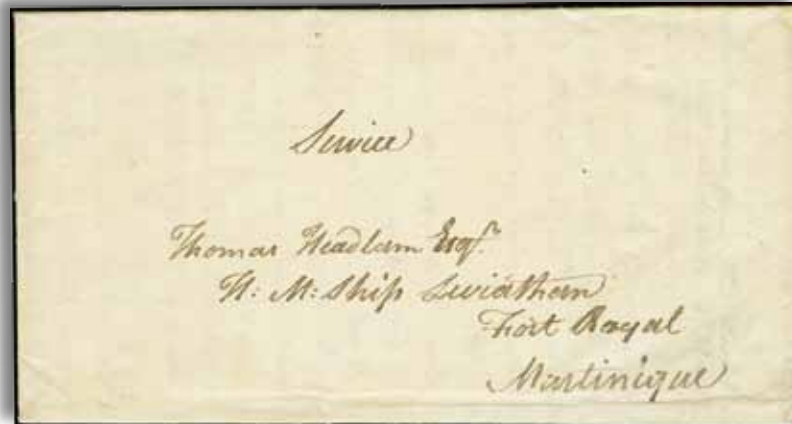 Service
Thomas Headlam Esqr.
H: M: Ship Leviathan
Fort Royal
Martinique